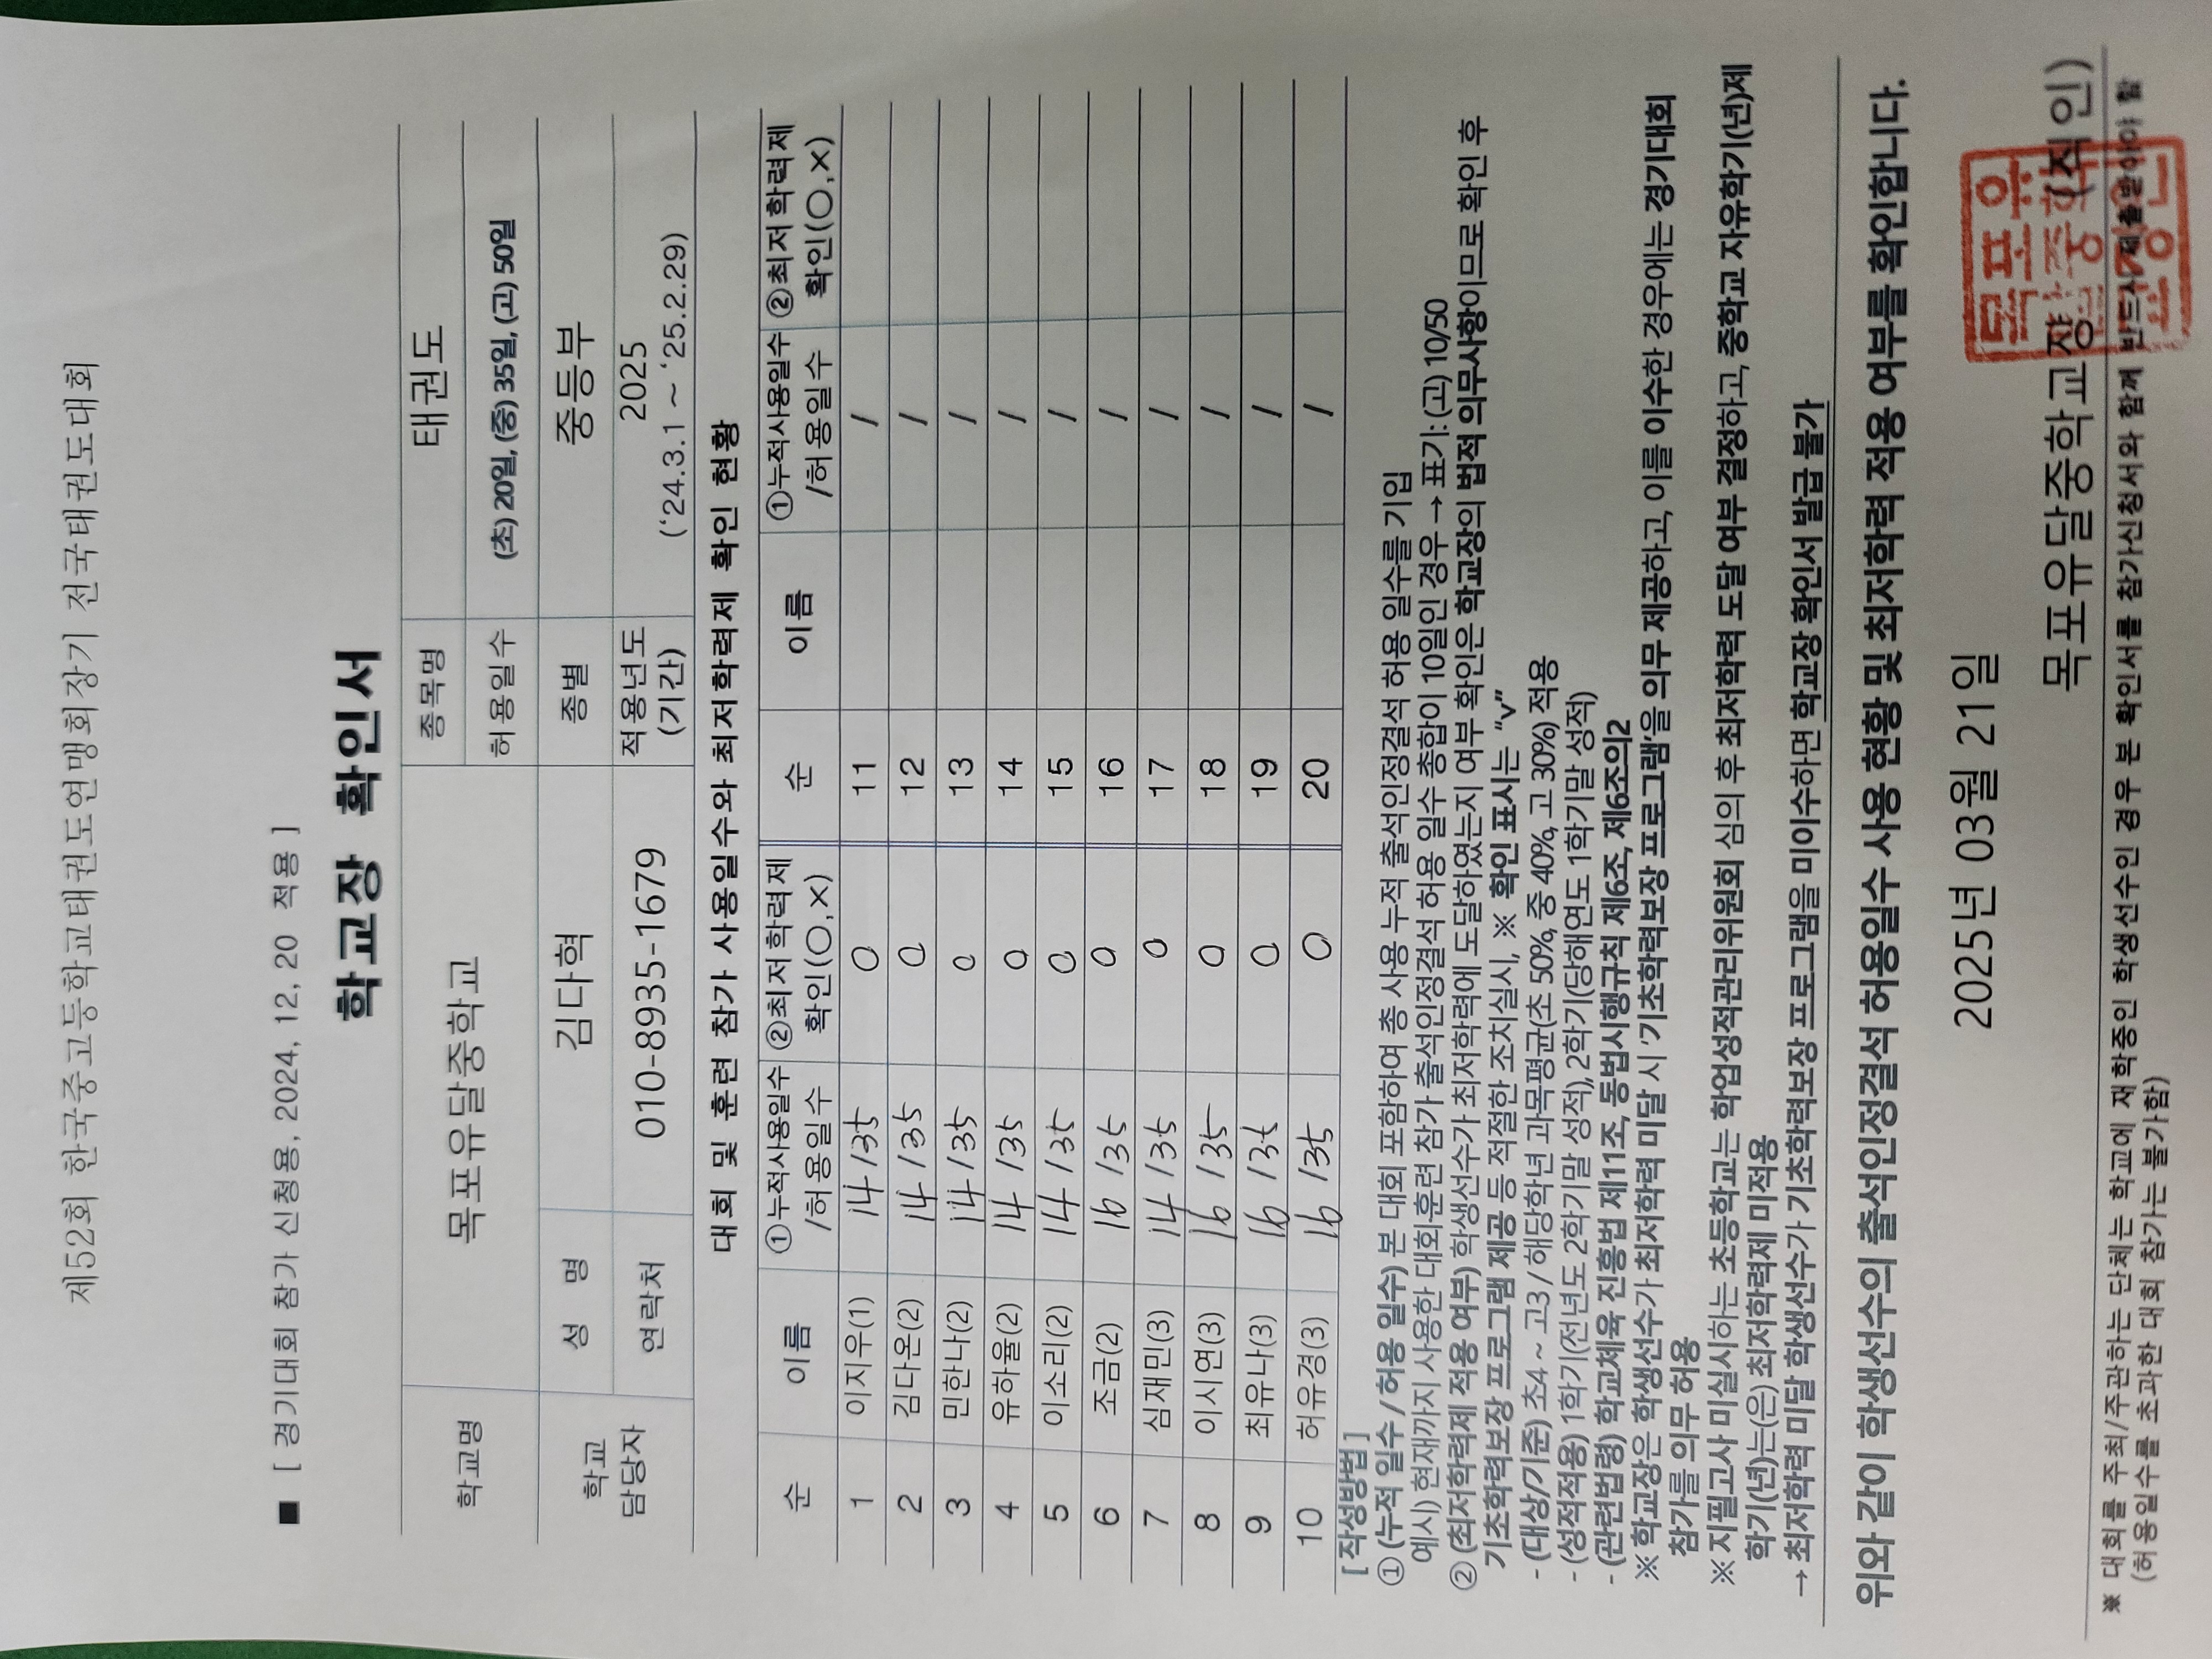 제52회 한국중고등학교태권도연맹회장기 전국태권도대회
■ [ 경기대회 참가 신청용, 2024, 12, 20 적용 ]
학교장 확인서
학교명 목포유달중학교 종목명 태권도
허용일수 (초) 20일, (중) 35일, (고) 50일
학교 담당자 성 명 김다혁 종별 중등부
연락처 010-8935-1679 적용년도 (기간) 2025 ('24.3.1 ~ '25.2.29)
대회 및 훈련 참가 사용일수와 최저학력제 확인 현황
순 이름 ①누적사용일수 /허용일수 ②최저학력제 확인(○,×) 순 이름 ①누적사용일수 /허용일수 ②최저학력제 확인(○,×)
1 이지우(1) 14/35 ○ 11 /
2 김다온(2) 14/35 ○ 12 /
3 민한나(2) 14/35 ○ 13 /
4 유하율(2) 14/35 ○ 14 /
5 이소리(2) 14/35 ○ 15 /
6 조금(2) 16/35 ○ 16 /
7 심재민(3) 14/35 ○ 17 /
8 이시연(3) 16/35 ○ 18 /
9 최유나(3) 16/35 ○ 19 /
10 허유경(3) 16/35 ○ 20 /
[ 작성방법 ]
① (누적 일수 / 허용 일수) 본 대회 포함하여 총 사용 누적 출석인정결석 허용 일수를 기입
예시) 현재까지 사용한 대회훈련 참가 출석인정결석 허용 일수 총합이 10일인 경우 → 표기: (고) 10/50
② (최저학력제 적용 여부) 학생선수가 최저학력에 도달하였는지 여부 확인은 학교장의 법적 의무사항이므로 확인 후
기초학력보장 프로그램 제공 등 적절한 조치실시, ※ 확인 표시는 "v"
- (대상/기준) 초4 ~ 고3 / 해당학년 과목평균(초 50%, 중 40%, 고 30%) 적용
- (성적적용) 1학기(전년도 2학기말 성적), 2학기(당해연도 1학기말 성적)
- (관련법령) 학교체육 진흥법 제11조, 동법시행규칙 제6조, 제6조의2
※ 학교장은 학생선수가 최저학력 미달 시 '기초학력보장 프로그램'을 의무 제공하고, 이를 이수한 경우에는 경기대회
참가를 의무 허용
※ 지필고사 미실시하는 초등학교는 학업성적관리위원회 심의 후 최저학력 도달 여부 결정하고, 중학교 자유학기(년)제
학기(년)는(은) 최저학력제 미적용
→ 최저학력 미달 학생선수가 기초학력보장 프로그램을 미이수하면 학교장 확인서 발급 불가
위와 같이 학생선수의 출석인정결석 허용일수 사용 현황 및 최저학력 적용 여부를 확인합니다.
2025년 03월 21일
목포유달중학교장 (직인)
※ 대회를 주최/주관하는 단체는 학교에 재학중인 학생선수인 경우 본 확인서를 참가신청서와 함께 반드시 제출받아야 함
(허용일수를 초과한 대회 참가는 불가함)